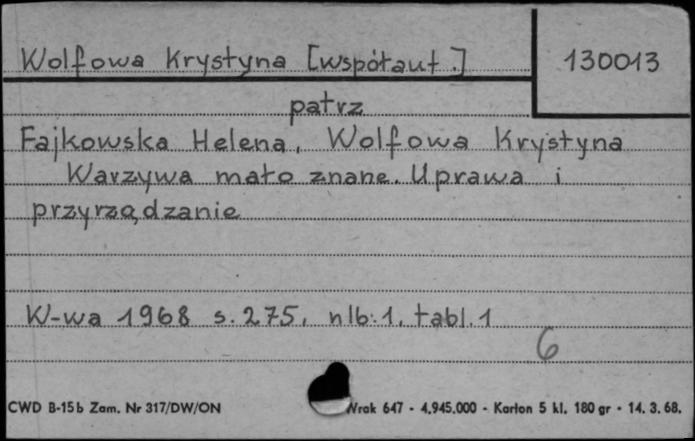 Wolfowa Krystyna [współaut.] 130013
patrz
Fajkowska Helena, Wolfowa Krystyna
Warzywa mało znane. Uprawa i
przyrządzanie
W-wa 1968 s. 275, nlb. 1, tabl. 1
6
CWD B-15b Zam. Nr 317/DW/ON Wrak 647 - 4.945.000 - Karton 5 kl. 180 gr - 14. 3. 68.